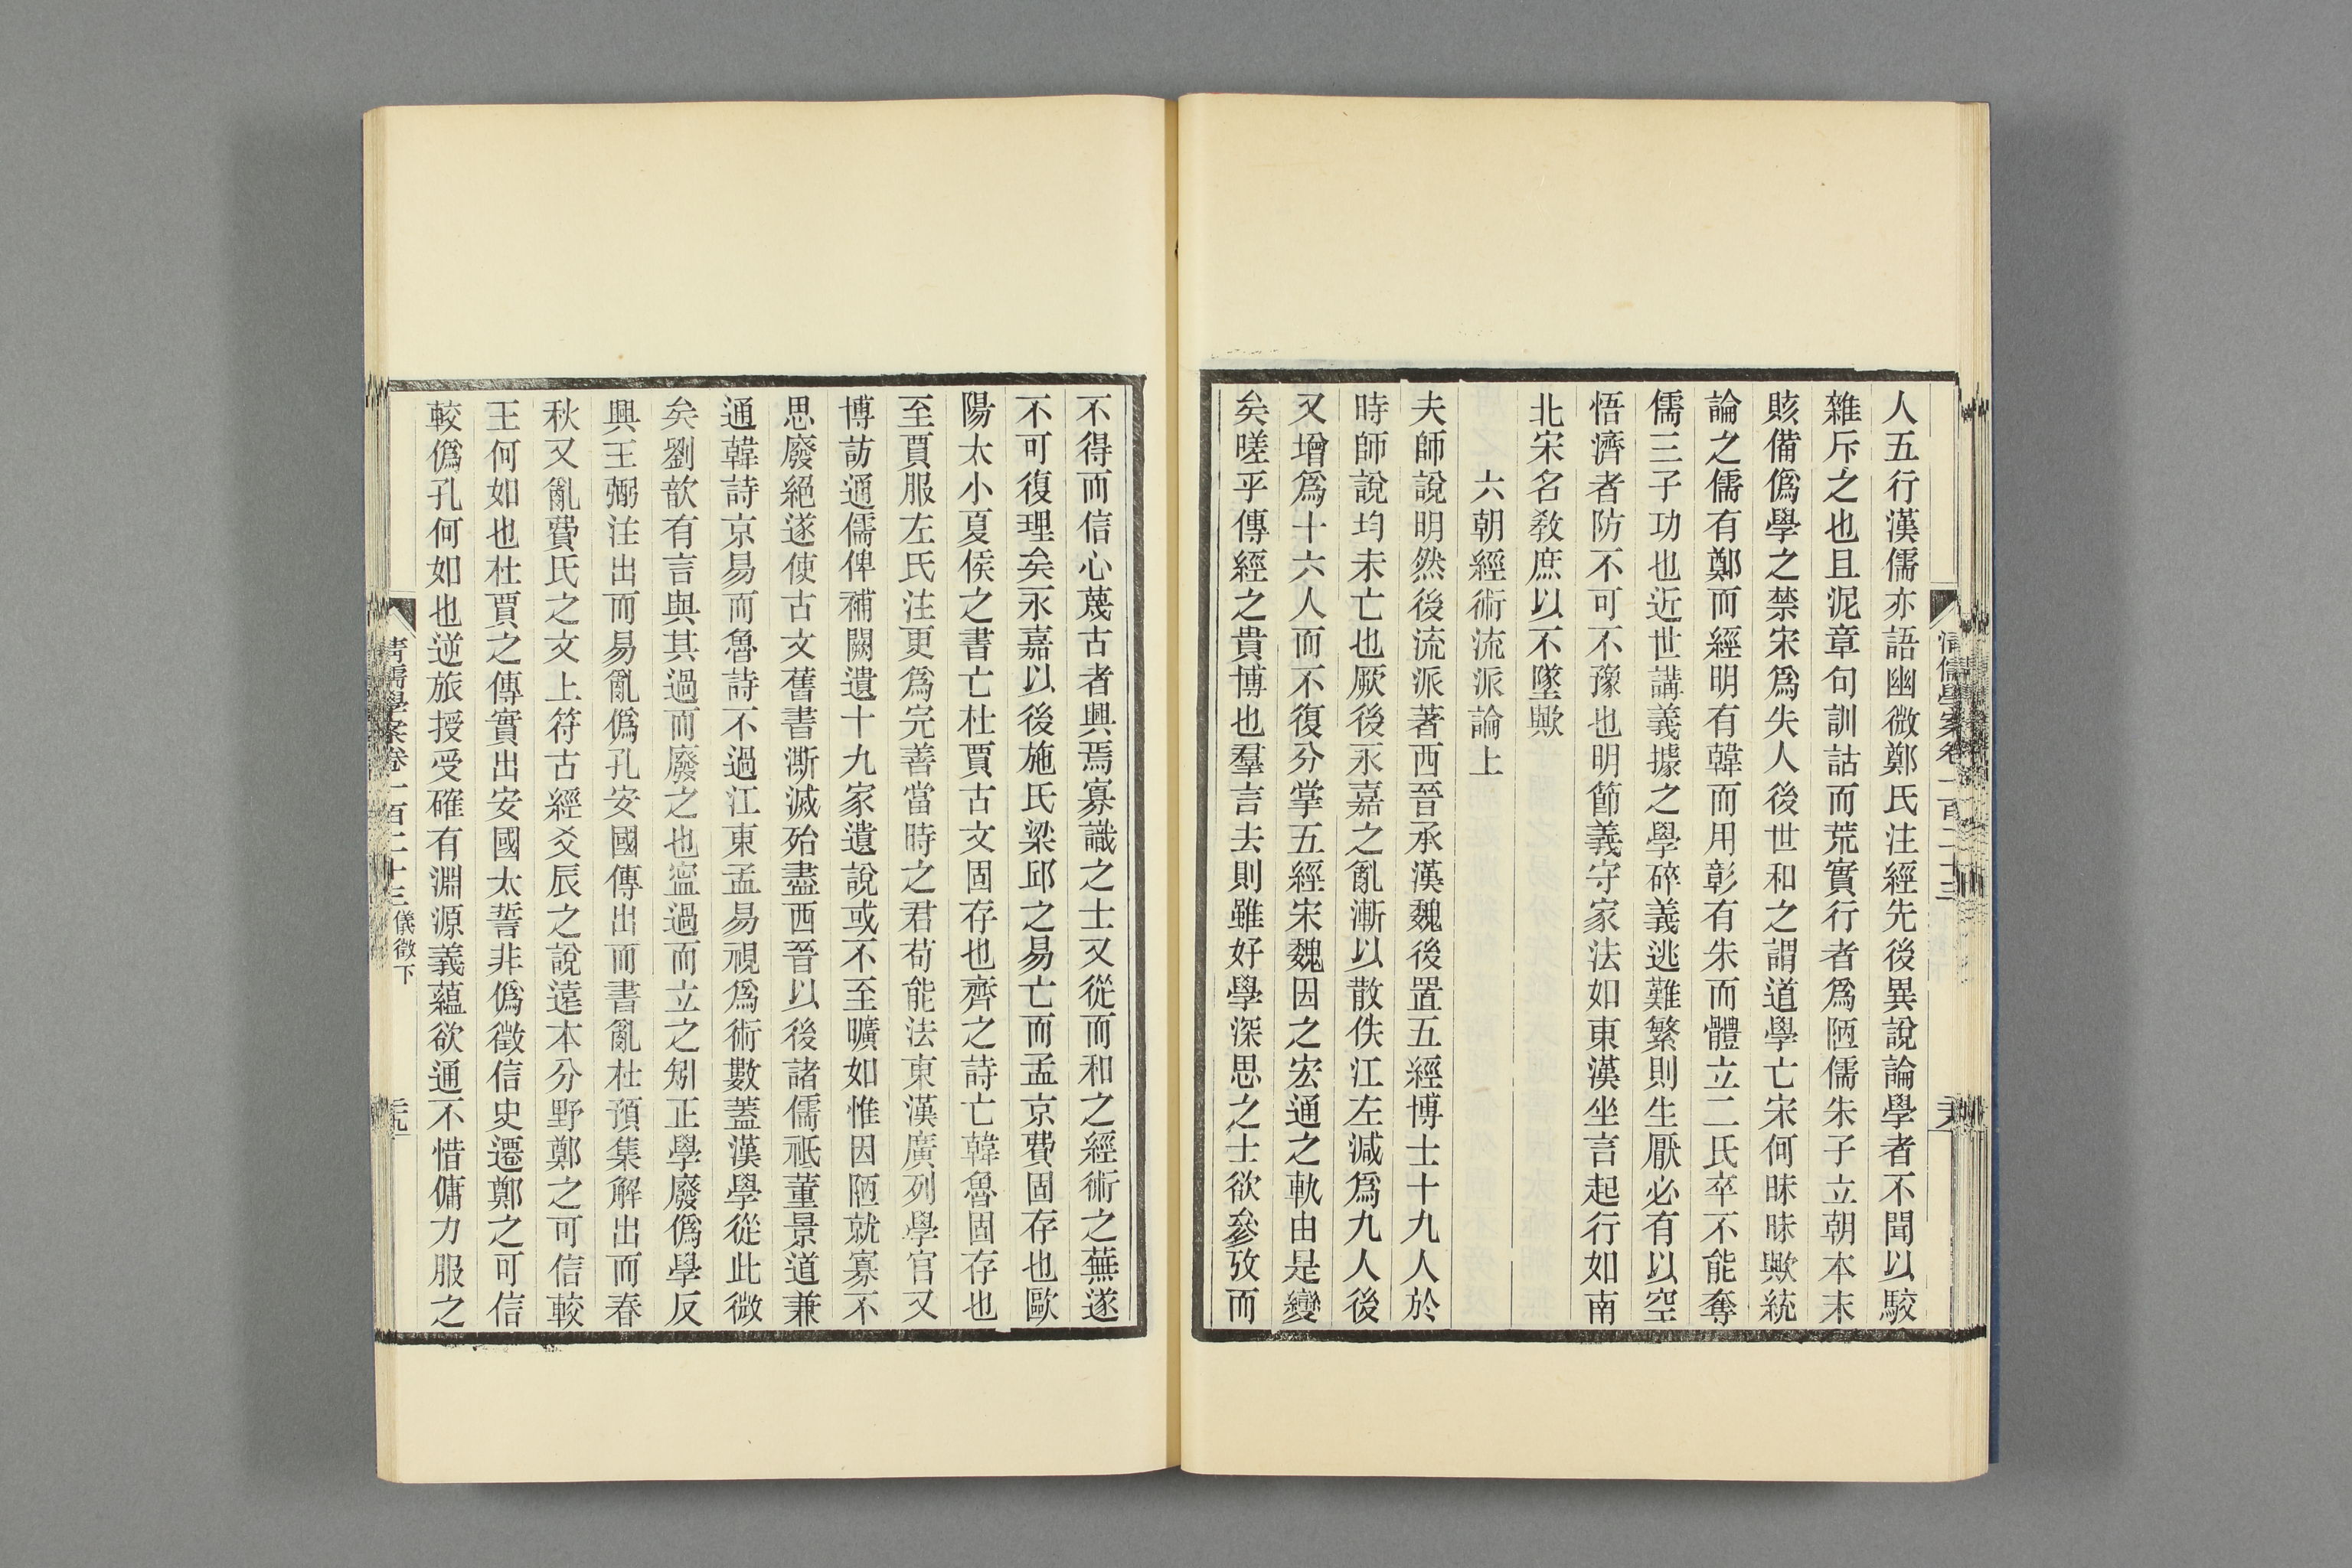 人五行漢儒亦語幽微鄭氏注經先後異說論學者不聞以駮
雜斥之也且泥章句訓詁而荒實行者爲陋儒朱子立朝本末
賅備僞學之禁宋爲失人後世和之謂道學亡宋何昧昧歟統
論之儒有鄭而經明有韓而用彰有朱而體立二氏卒不能奪
儒三子功也近世講義據之學碎義逃難繁則生厭必有以空
悟濟者防不可不豫也明節義守家法如東漢坐言起行如南
北宋名敎庶以不墜歟
六朝經術流派論上
夫師說明然後流派著西晉承漢魏後置五經博士十九人於
時師說均未亡也厥後永嘉之亂漸以散佚江左減爲九人後
又增爲十六人而不復分掌五經宋魏因之宏通之軌由是變
矣嗟乎傳經之貴博也羣言去則雖好學深思之士欲參攷而
不得而信心蔑古者興焉寡識之士又從而和之經術之蕪遂
不可復理矣永嘉以後施氏梁邱之易亡而孟京費固存也歐
陽太小夏侯之書亡杜賈古文固存也齊之詩亡韓魯固存也
至賈服左氏注更爲完善當時之君苟能法東漢廣列學官又
博訪通儒俾補闕遺十九家遺說或不至曠如惟因陋就寡不
思廢絕遂使古文舊書澌滅殆盡西晉以後諸儒祗董景道兼
通韓詩京易而魯詩不過江東孟易視爲術數蓋漢學從此微
矣劉歆有言與其過而廢之也寍過而立之矧正學廢僞學反
興王弼注出而易亂僞孔安國傳出而書亂杜預集解出而春
秋又亂費氏之文上符古經爻辰之說遠本分野鄭之可信較
王何如也杜賈之傳實出安國太誓非僞徵信史遷鄭之可信
較僞孔何如也逆旅授受確有淵源義蘊欲通不惜傭力服之
清儒學案卷一百二十三 儀徵下